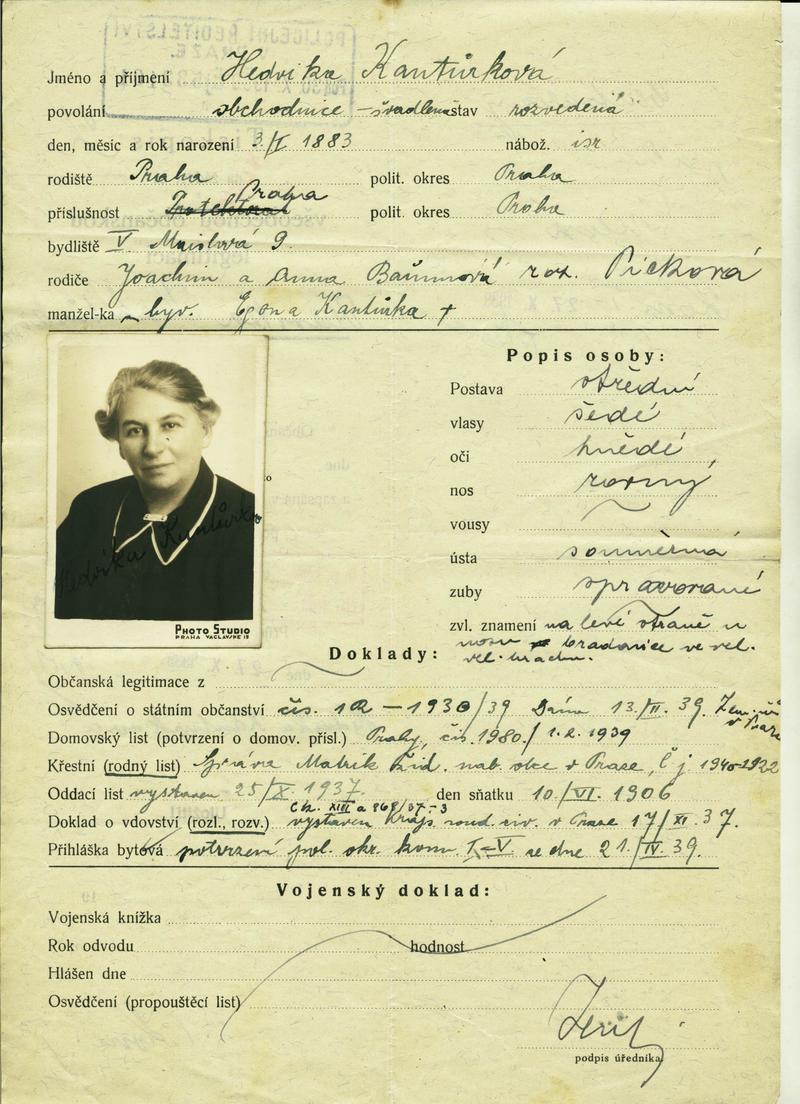 Jméno a příjmení Hedvika Kantůrková
povolání obchodnice - švadlena stav rozvedená
den, měsíc a rok narození 3/I 1883 nábož. isr
rodiště Praha polit. okres Praha
Praha
příslušnost Protektorat polit. okres Praha
bydliště V Maislová 9.
rodiče Joachim a Anna Baumová roz. Picková
manžel-ka byv. Egona Kantůrka +
Popis osoby:
Postava střední
vlasy šedé
oči hnědé
nos rovný
vousy
ústa souměrná
zuby spravované
zvl. znamení na levé straně u
nosu bradavice ve vel.
vel. hrachu.
Hedvika Kantůrko
PHOTO STUDIO
PRAHA VACLAV.NE 15
Doklady:
Občanská legitimace z
Osvědčení o státním občanství čís. 12 - 1930/39 Dáno 13/II. 39. Zem. úř
v Praze
Domovský list (potvrzení o domov. přísl.) Prahy, čís. 1980/ 1.2. 1939
Křestní (rodný list) Správa Matrik žid. náb. obce v Praze, Č j 1940-2922
Oddací list vystaven 25/X. 1937. den sňatku 10/VI. 1906
Ck. XIII a 868/37-3
Doklad o vdovství (rozl., rozv.) vystaven Krajs. soud civ. v Praze 17/XI. 37.
Přihláška bytová potvrzení pol. okr. kom. I-V ze dne 21./IV. 39.
Vojenský doklad:
Vojenská knížka
Rok odvodu hodnost
Hlášen dne
Osvědčení (propouštěcí list)
podpis úředníka